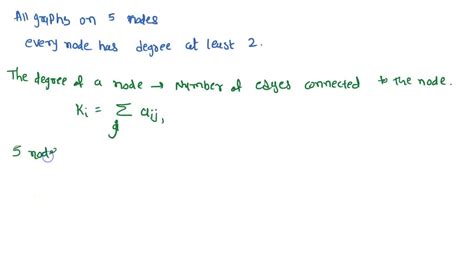 All graphs on 5 nodes
every node has degree at least 2.
The degree of a node → Number of edges connected to the node.
Ki = ∑j aij,
5 node